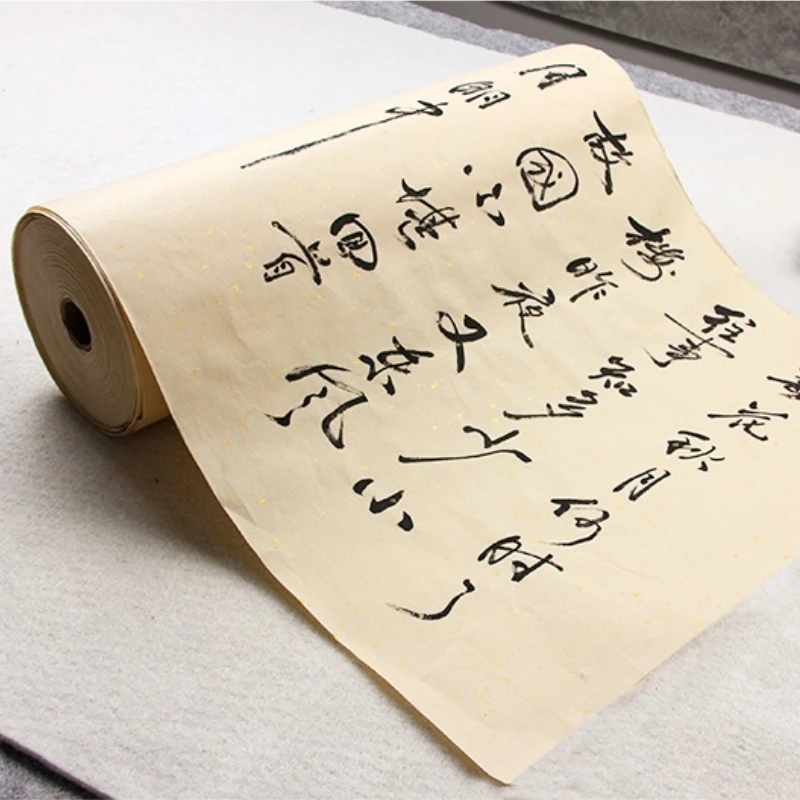 春花秋月何时了
往事知多少小
楼昨夜又东风
故國不堪回首
月明中